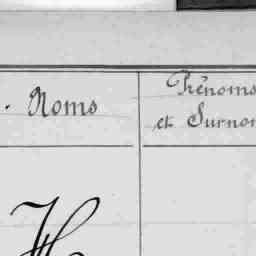 Noms
Prénoms
et Surnom
H